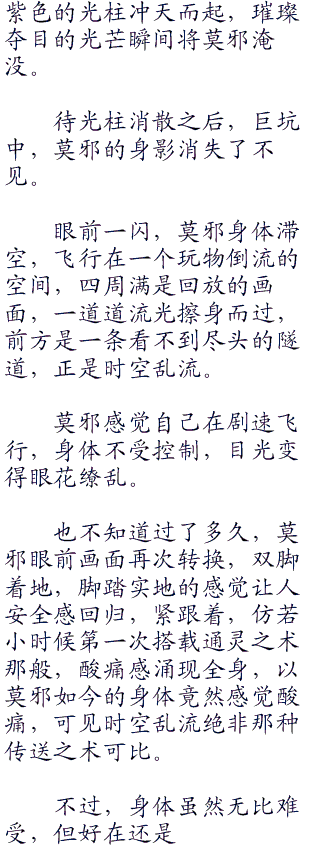 紫色的光柱冲天而起，璀璨
夺目的光芒瞬间将莫邪淹
没。
待光柱消散之后，巨坑
中，莫邪的身影消失了不
见。
眼前一闪，莫邪身体滞
空，飞行在一个玩物倒流的
空间，四周满是回放的画
面，一道道流光擦身而过，
前方是一条看不到尽头的隧
道，正是时空乱流。
莫邪感觉自己在剧速飞
行，身体不受控制，目光变
得眼花缭乱。
也不知道过了多久，莫
邪眼前画面再次转换，双脚
着地，脚踏实地的感觉让人
安全感回归，紧跟着，仿若
小时候第一次搭载通灵之术
那般，酸痛感涌现全身，以
莫邪如今的身体竟然感觉酸
痛，可见时空乱流绝非那种
传送之术可比。
不过，身体虽然无比难
受，但好在还是